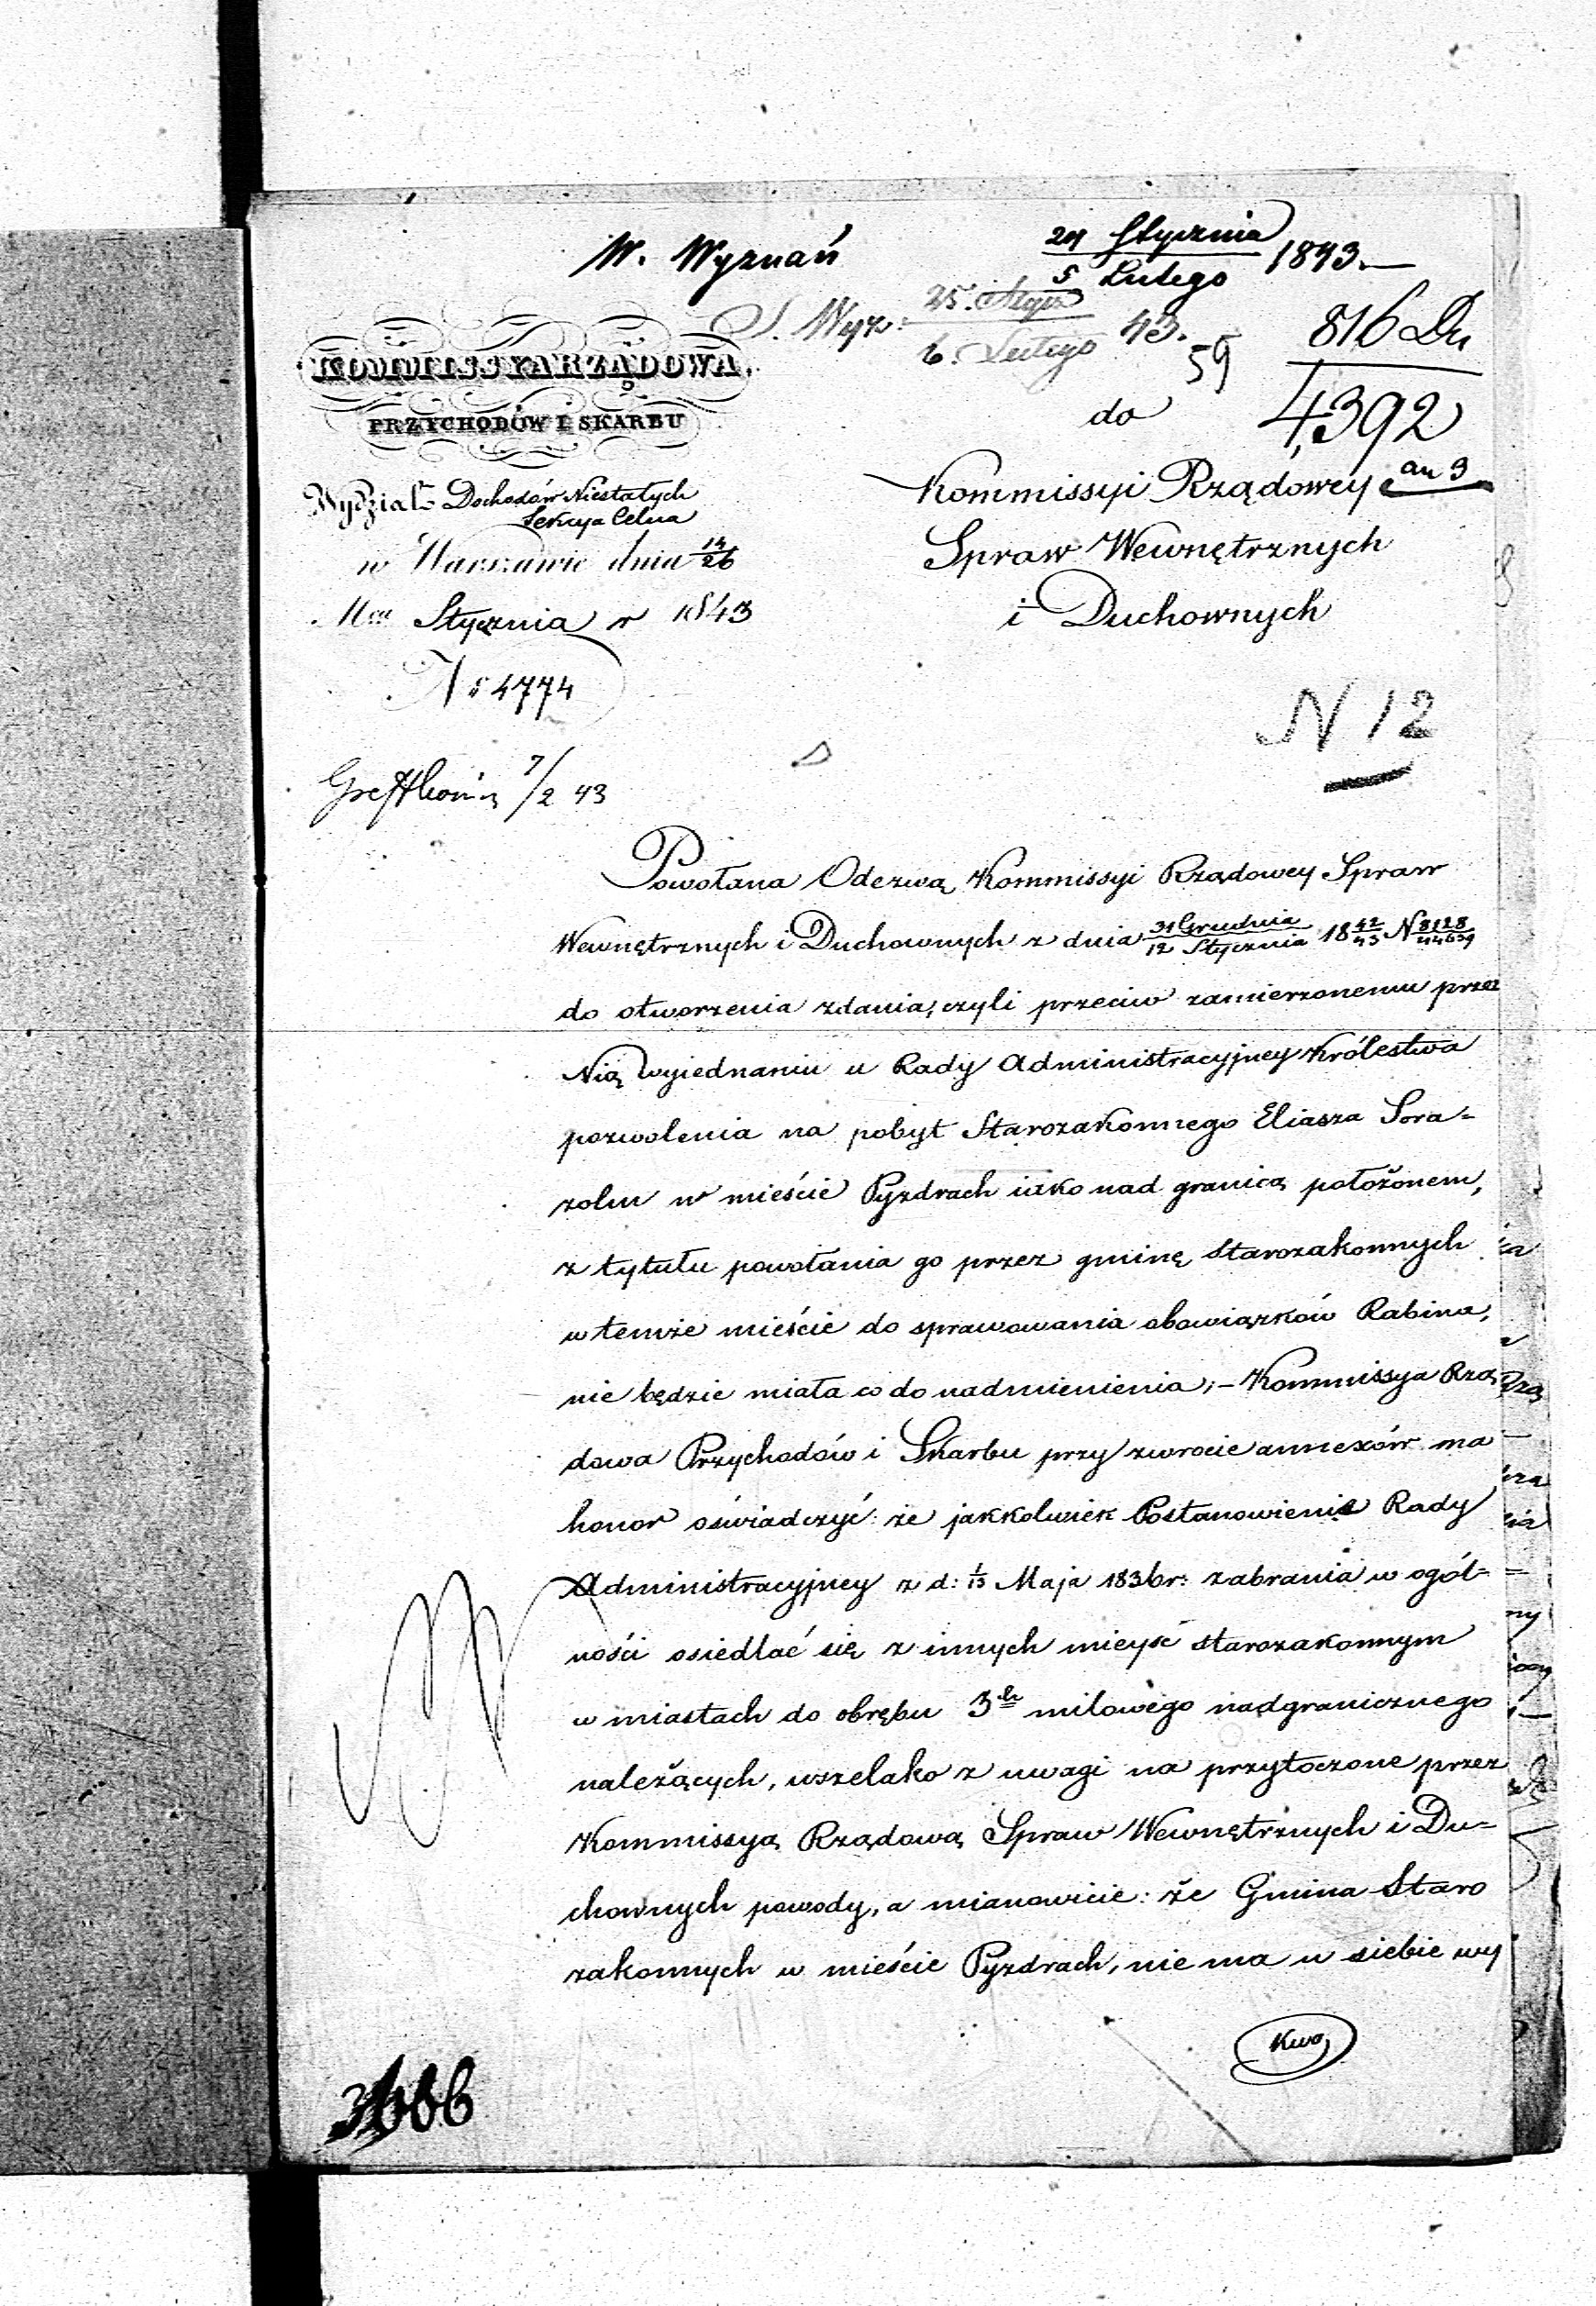 W. Wyznań
24 Stycznia
5 Lutego 1843.—
S. Wyz: 25. Stycz
6. Lutego 43.
59
816 Du
4,392
an 3
KOMMISSYA RZĄDOWA
PRZYCHODÓW I SKARBU
Wydział Dochodów Niestałych
Sekcya Celna
w Warszawie dnia 14/26
Mca Stycznia r 1843
N 4774
do
Kommissyi Rządowey
Spraw Wewnętrznych
i Duchownych
N 12
7/2 43
Powołana Odezwą Kommissyi Rządowey Spraw
Wewnętrznych i Duchownych z dnia 31 Grudnia/12 Stycznia 1842/43 N 8128/44639
do otworzenia zdania, czyli przeciw zamierzonemu przez
Nią wyiednaniu u Rady Administracyjney Królestwa
pozwolenia na pobyt Starozakonnego Eliasza Sora=
zolm w mieście Pyzdrach iako nad granicą położonem,
z tytułu powołania go przez gminę Starozakonnych
w temże mieście do sprawowania obowiązków Rabina,
nie będzie miała co do nadmienienia;– Kommissya Rzą
dowa Przychodów i Skarbu przy zwrocie annexów ma
honor oświadczyć: że jakkolwiek Postanowienie Rady
Administracyjney z d: 1/13 Maja 1836 r: zabrania w ogól=
ności osiedlać się z innych mieysć starozakonnym
w miastach do obrębu 3ch milowego nadgranicznego
należących, wszelako z uwagi na przytoczone przez
Kommissyą Rządową Spraw Wewnętrznych i Du=
chownych powody, a mianowicie: że Gmina Staro
zakonnych w mieście Pyzdrach, nie ma u siebie wy
Kwo